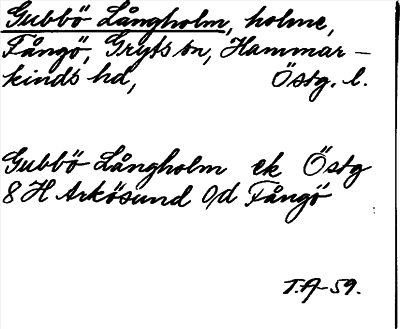 Gubbö Långholm, holme,
Fångö, Gryts sn, Hammar-
kinds hd, Östg. l.
Gubbö Långholm ek Östg
8 H Arkösund O/d Fångö
T.A-59.